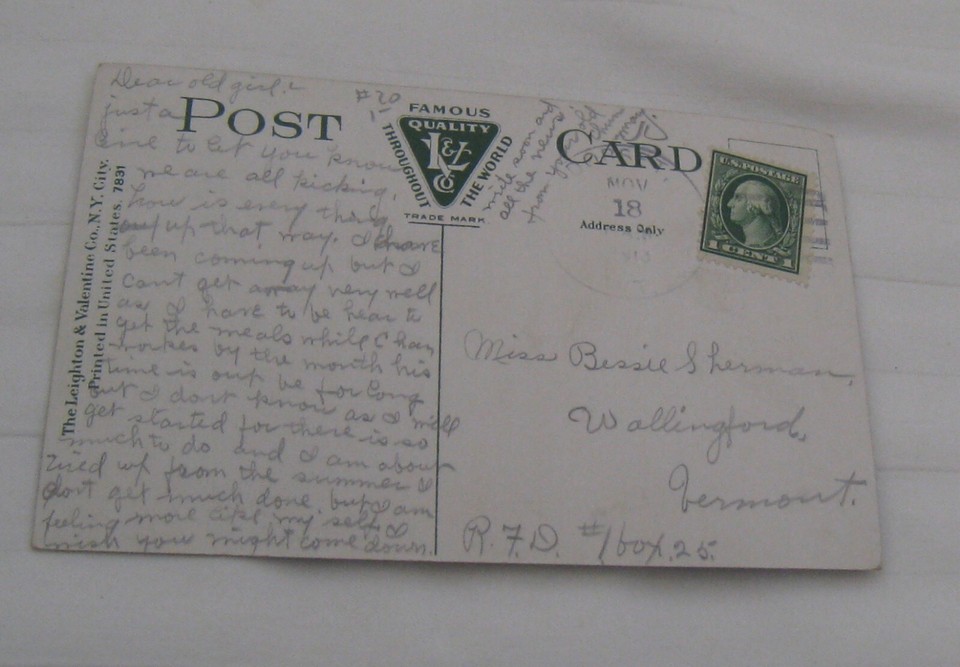 Dear old girl:
just a
line to let you know
we are all kicking,
how is every thing
up that way. I have
been coming up but I
can't get away very well
as I have to be hear to
get the meals while Chan
workes by the month his
time is out be for long
but I dont know as I will
get started for there is so
much to do and I am about
tired up from the summer I
dont get much done, but I am
feeling more like my self, I
wish you might come down.
#20
write soon and
all the news
from your old
chum
May.
POST CARD
FAMOUS
QUALITY
L&V
Co
THROUGHOUT THE WORLD
TRADE MARK
NOV
18
Address Only
U.S. POSTAGE
1 CENT 1
Miss Bessie Sherman,
Wallingford,
Vermont.
R.F.D. #1 box. 25.
The Leighton & Valentine Co., N.Y. City.
Printed in United States. 7831